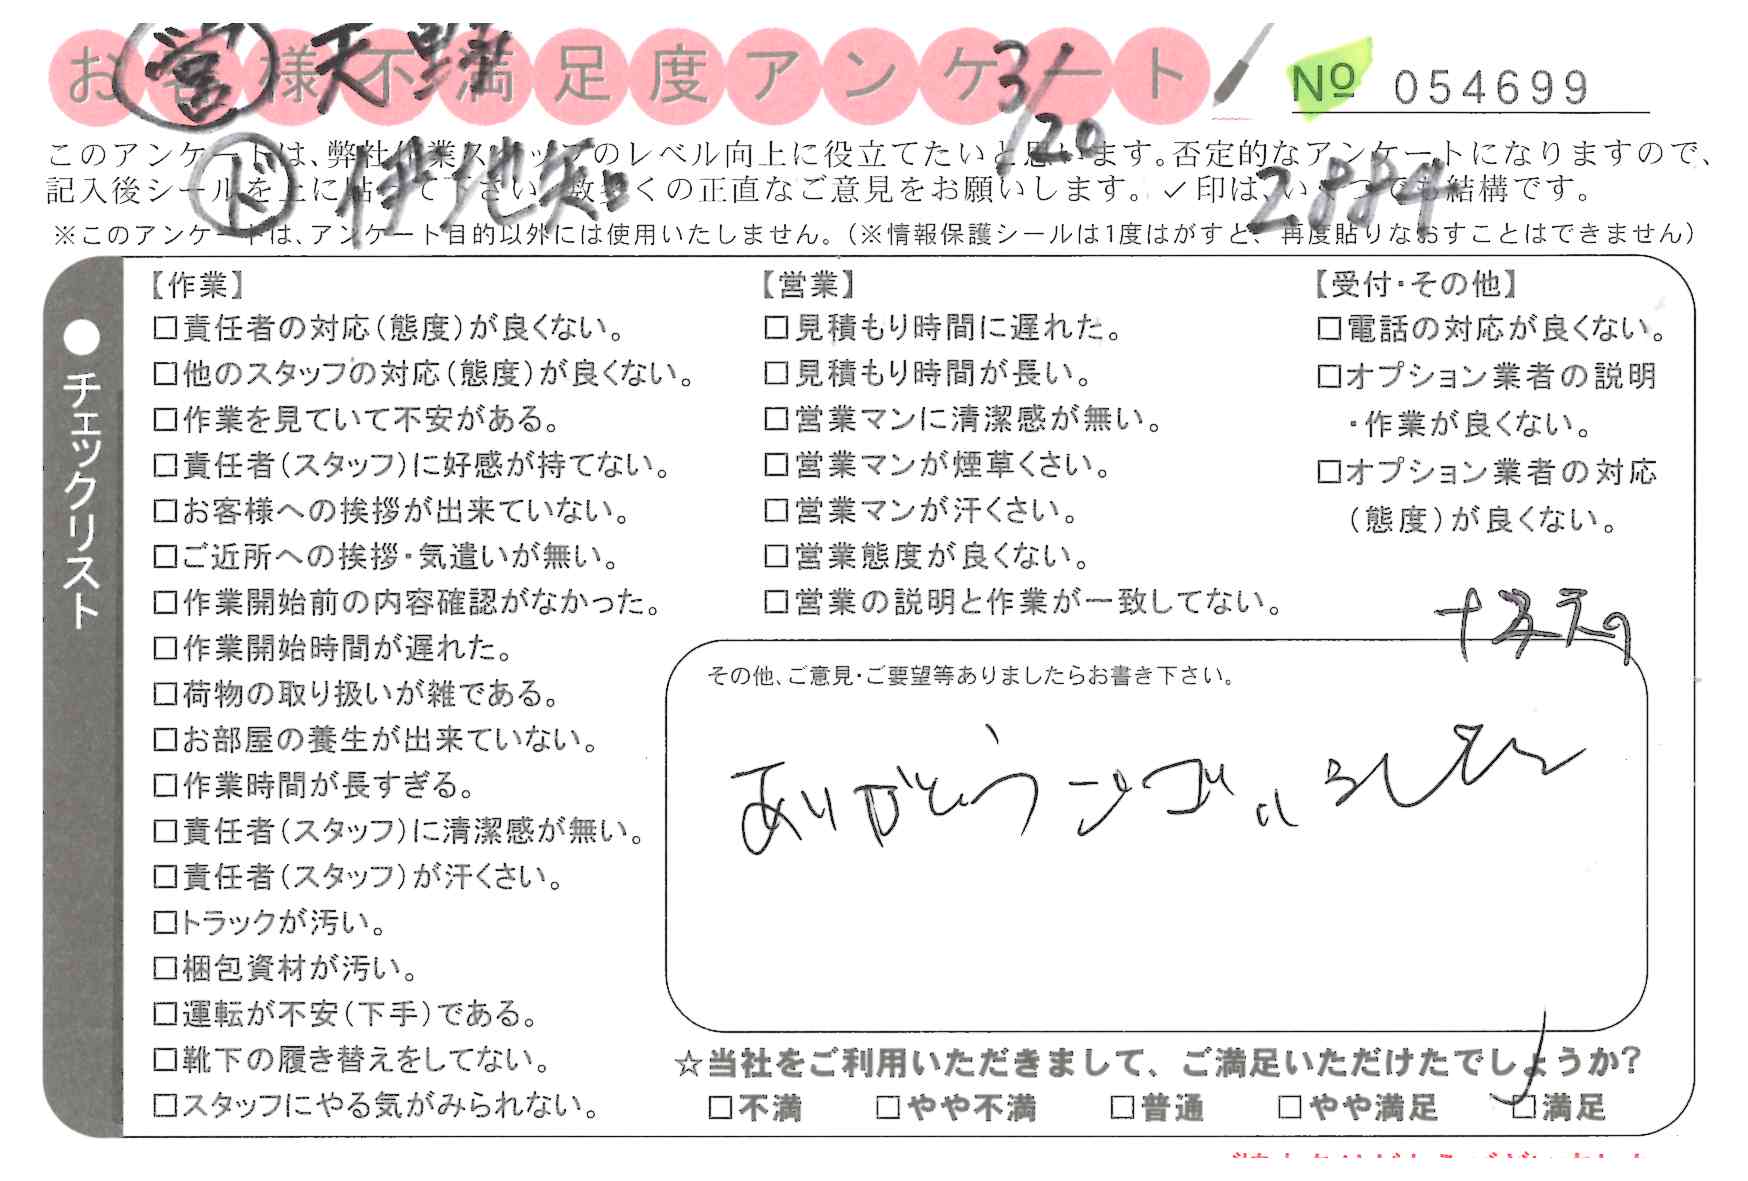 お客様不満足度アンケート № 054699
営 天野 3/20
このアンケートは、弊社作業スタッフのレベル向上に役立てたいと思います。否定的なアンケートになりますので、
ド 伊地知 2884
記入後シールを上に貼って下さい。数多くの正直なご意見をお願いします。✓印は、いくつでも結構です。
※このアンケートは、アンケート目的以外には使用いたしません。(※情報保護シールは1度はがすと、再度貼りなおすことはできません)
●チェックリスト
【作業】
□責任者の対応(態度)が良くない。
□他のスタッフの対応(態度)が良くない。
□作業を見ていて不安がある。
□責任者(スタッフ)に好感が持てない。
□お客様への挨拶が出来ていない。
□ご近所への挨拶・気遣いが無い。
□作業開始前の内容確認がなかった。
□作業開始時間が遅れた。
□荷物の取り扱いが雑である。
□お部屋の養生が出来ていない。
□作業時間が長すぎる。
□責任者(スタッフ)に清潔感が無い。
□責任者(スタッフ)が汗くさい。
□トラックが汚い。
□梱包資材が汚い。
□運転が不安(下手)である。
□靴下の履き替えをしてない。
□スタッフにやる気がみられない。
【営業】
□見積もり時間に遅れた。
□見積もり時間が長い。
□営業マンに清潔感が無い。
□営業マンが煙草くさい。
□営業マンが汗くさい。
□営業態度が良くない。
□営業の説明と作業が一致してない。
【受付・その他】
□電話の対応が良くない。
□オプション業者の説明
・作業が良くない。
□オプション業者の対応
(態度)が良くない。
その他、ご意見・ご要望等ありましたらお書き下さい。
ありがとうございました
☆当社をご利用いただきまして、ご満足いただけたでしょうか?
□不満 □やや不満 □普通 □やや満足 □満足